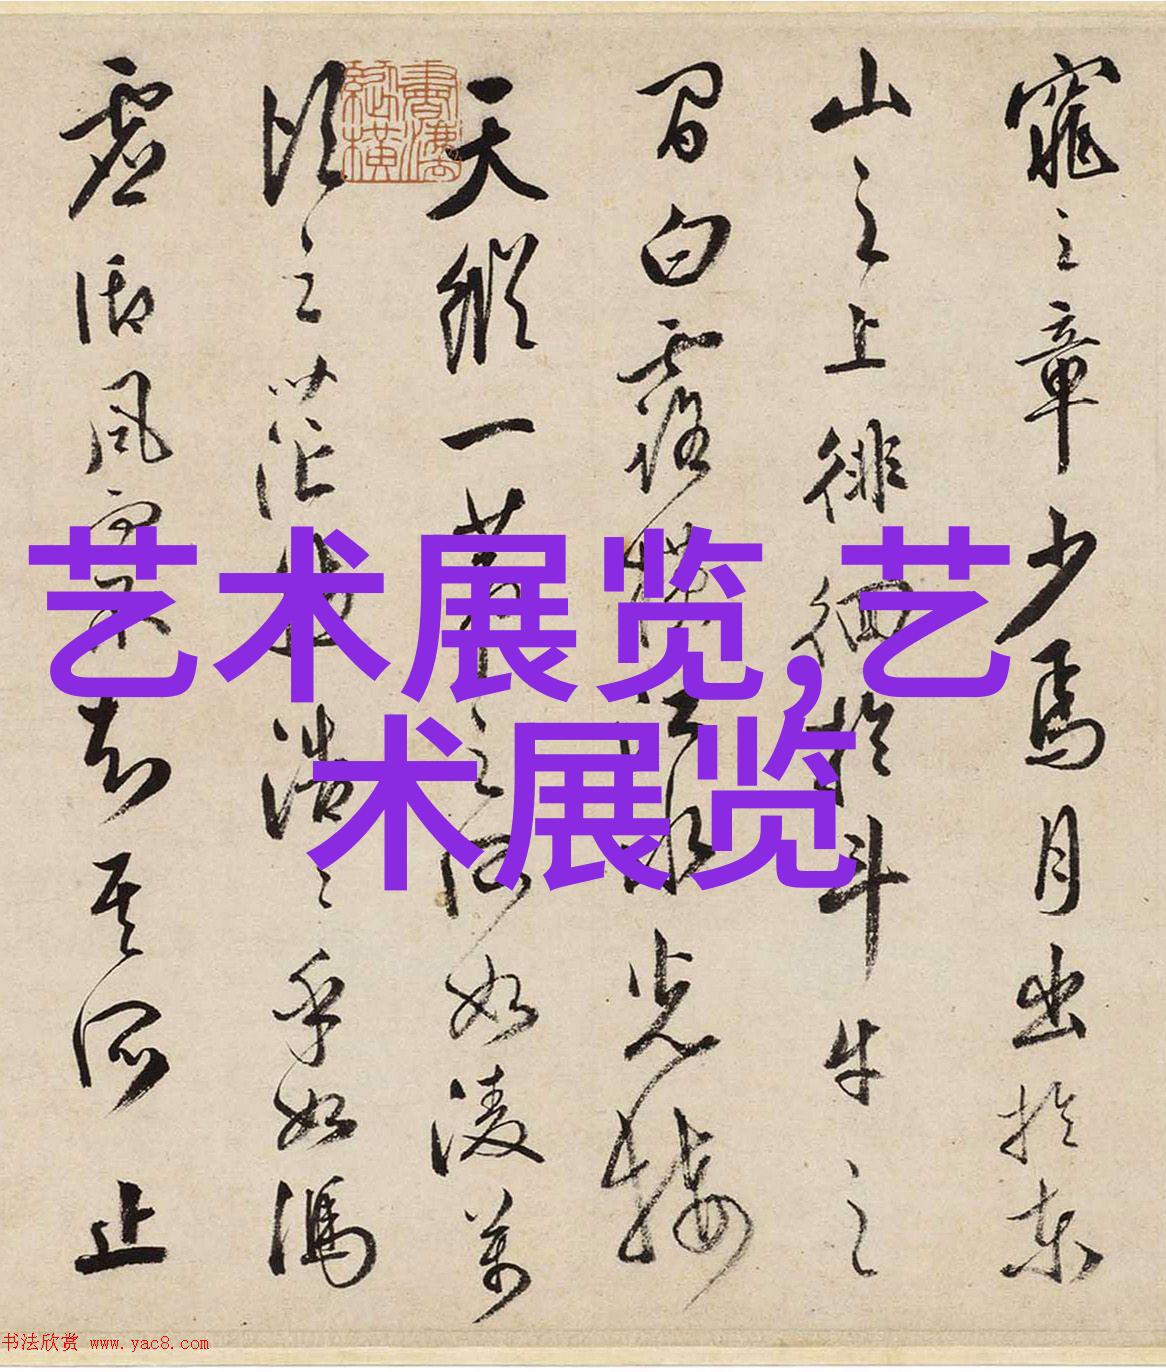 窕之章少焉月出於東
山之上徘徊於斗牛之
間白露橫江水光接
天縱一葦之所如凌萬
頃之茫然浩〻乎如馮
虛御風而不知其所止
艺术展览,艺
术展览
书法欣赏 www.yac8.com